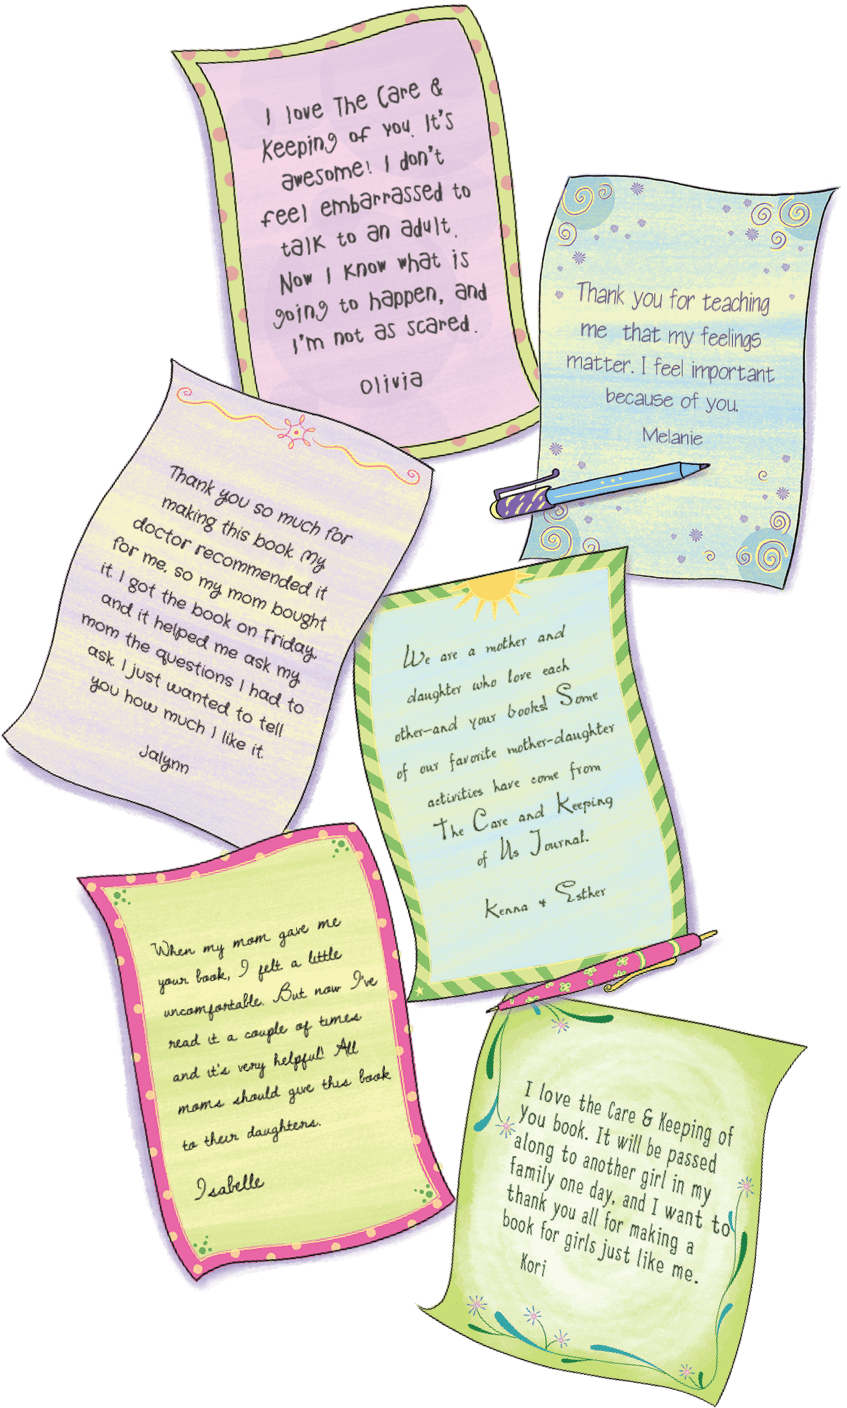 I love The Care &
Keeping of you. It's
awesome! I don't
feel embarrassed to
talk to an adult.
Now I know what is
going to happen, and
I'm not as scared.
Olivia
Thank you for teaching
me that my feelings
matter. I feel important
because of you.
Melanie
Thank you so much for
making this book. My
doctor recommended it
for me, so my mom bought
it. I got the book on Friday,
and it helped me ask my
mom the questions I had to
ask. I just wanted to tell
you how much I like it.
Jalynn
We are a mother and
daughter who love each
other—and your books! Some
of our favorite mother-daughter
activities have come from
The Care and Keeping
of Us Journal.
Kenna & Esther
When my mom gave me
your book, I felt a little
uncomfortable. But now I've
read it a couple of times
and it's very helpful! All
moms should give this book
to their daughters.
Isabelle
I love the Care & Keeping of
You book. It will be passed
along to another girl in my
family one day, and I want to
thank you all for making a
book for girls just like me.
Kori